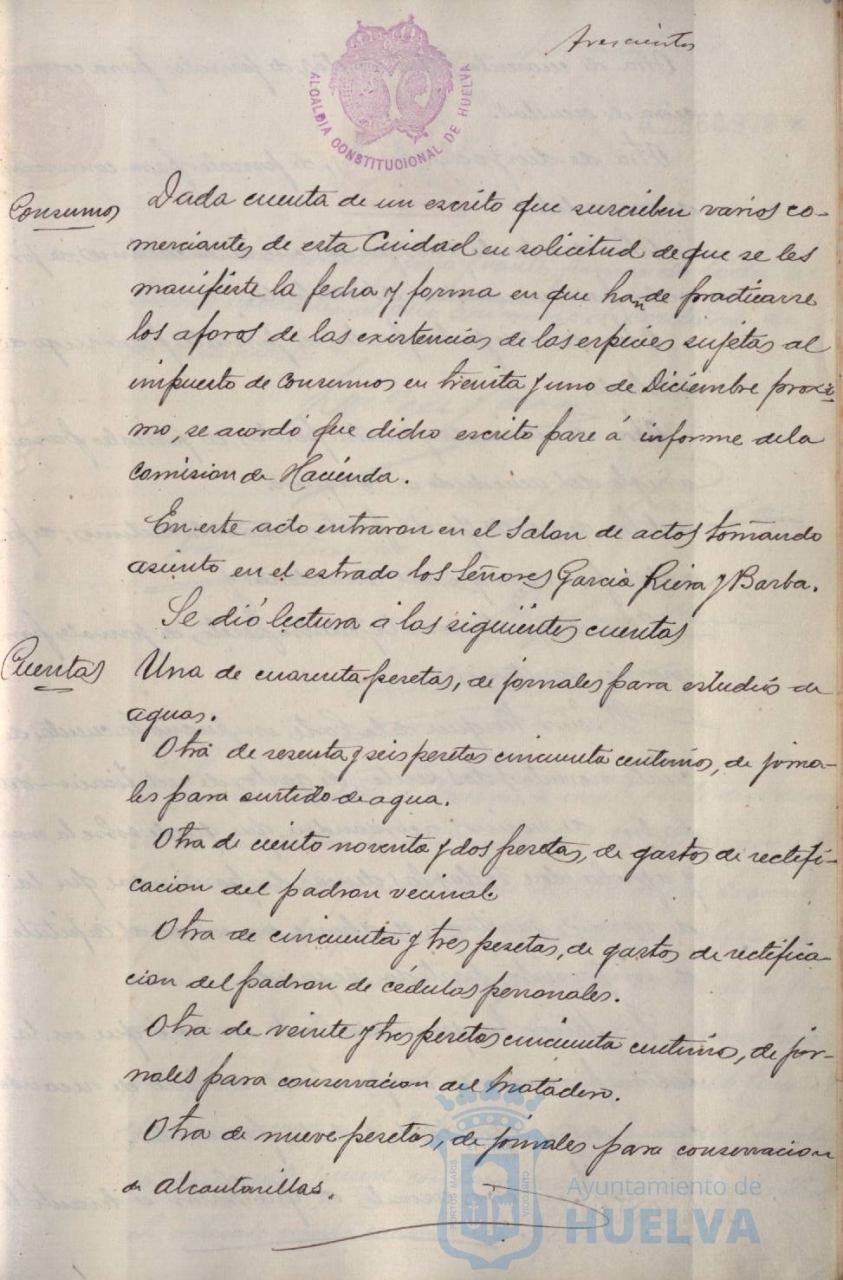 Trescientos
ALCALDIA CONSTITUCIONAL DE HUELVA
Consumos
Dada cuenta de un escrito que suscriben varios co-
merciantes de esta Ciudad en solicitud de que se les
manifieste la fecha y forma en que han de practicarse
los aforos de las existencias de las especies sujetas al
impuesto de consumos en treinta y uno de Diciembre proxi
mo, se acordó que dicho escrito pase á informe de la
Comision de Hacienda.
En este acto entraron en el Salon de actos tomando
asiento en el estrado los Señores Garcia Riera y Barba.
Se dió lectura á las siguientes cuentas
Cuentas
Una de cuarenta pesetas, de jornales para estudios de
aguas.
Otra de sesenta y seis pesetas cincuenta centimos, de jorna-
les para surtido de agua.
Otra de ciento noventa y dos pesetas, de gastos de rectifi-
cacion del padron vecinal
Otra de cincuenta y tres pesetas, de gastos de rectifica-
cion del padron de cédulas personales.
Otra de veinte y tres pesetas cincuenta centimos, de jor-
nales para conservacion del Matadero.
Otra de nueve pesetas, de jornales para conservacion
de Alcantarillas.
PORTUS MARIS
CUSTODIA
Ayuntamiento de
HUELVA